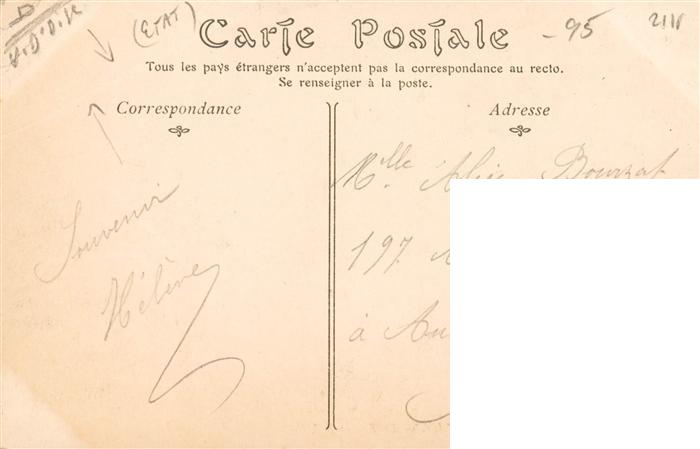 (ETAT)
-95
Carte Postale
Tous les pays étrangers n'acceptent pas la correspondance au recto.
Se renseigner à la poste.
Correspondance
Adresse
Souvenir
Hélène
Mlle Bourzat
197
à